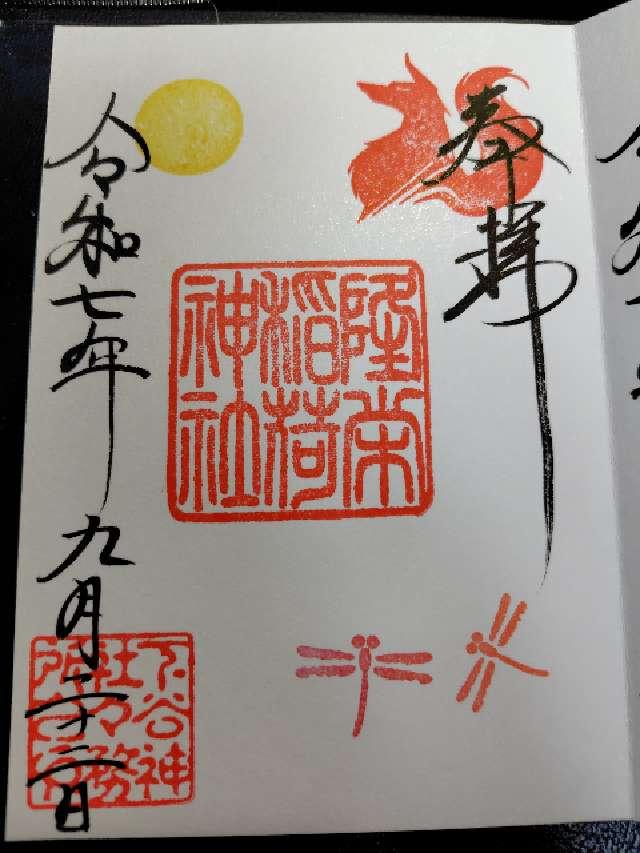 奉拝
隆栄
稲荷
神社
令和七年九月二十二日
下谷神
社々務
所